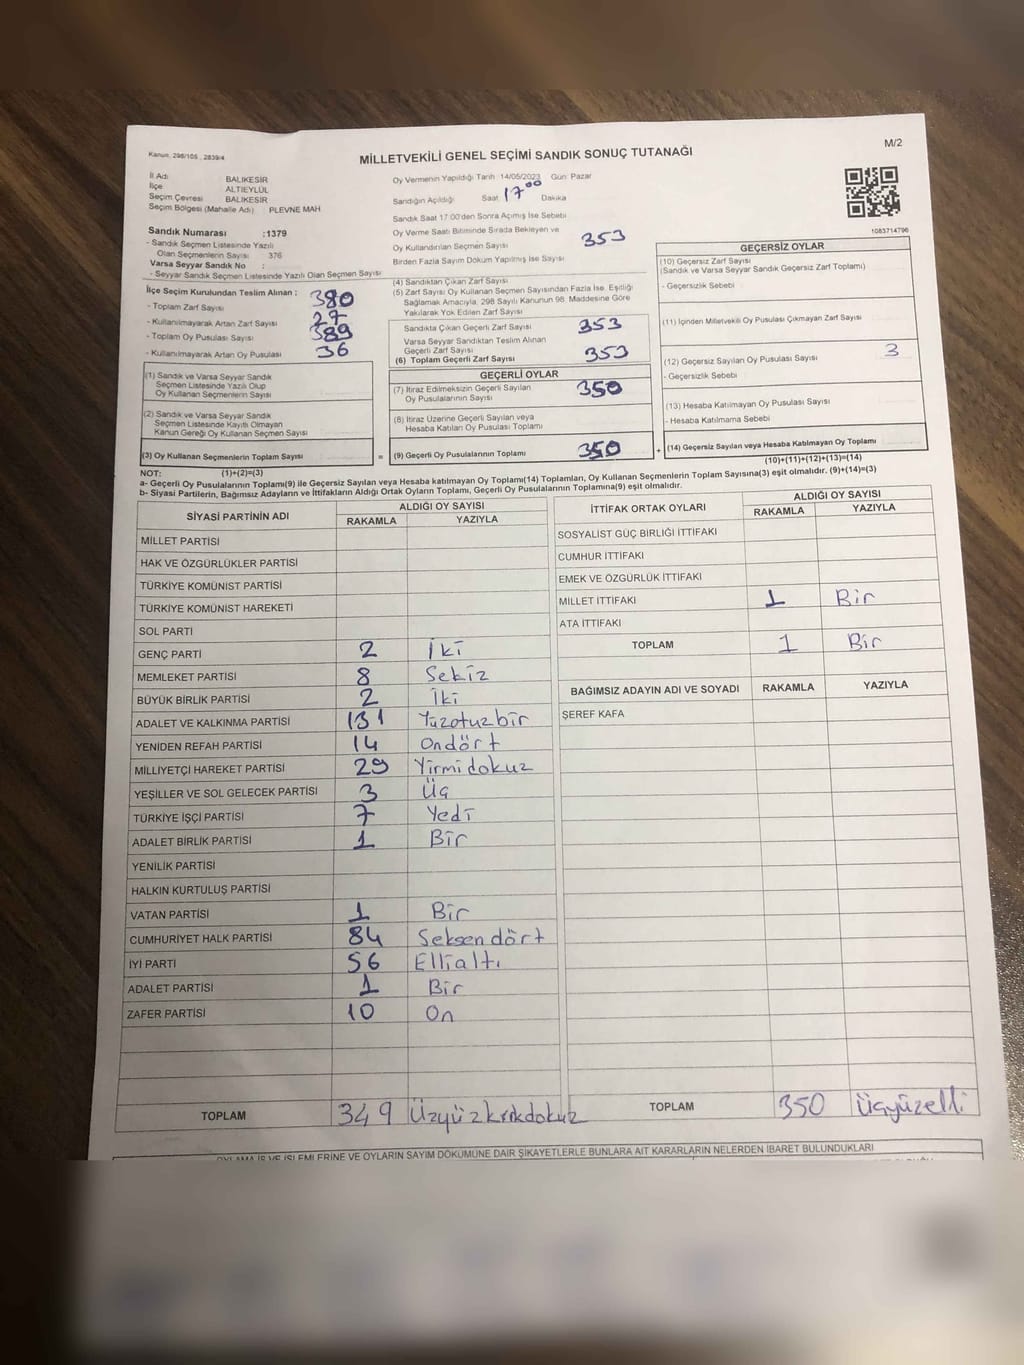 Kanun, 298/105, 2839/4
MİLLETVEKİLİ GENEL SEÇİMİ SANDIK SONUÇ TUTANAĞI
M/2
İl Adı BALIKESİR
İlçe ALTIEYLÜL
Seçim Çevresi BALIKESİR
Seçim Bölgesi (Mahalle Adı) PLEVNE MAH
Sandık Numarası :1379
- Sandık Seçmen Listesinde Yazılı
Olan Seçmenlerin Sayısı 376
Varsa Seyyar Sandık No :
- Seyyar Sandık Seçmen Listesinde Yazılı Olan Seçmen Sayısı
İlçe Seçim Kurulundan Teslim Alınan :
- Toplam Zarf Sayısı 380
- Kullanılmayarak Artan Zarf Sayısı 27
- Toplam Oy Pusulası Sayısı 389
- Kullanılmayarak Artan Oy Pusulası 36
(1) Sandık ve Varsa Seyyar Sandık
Seçmen Listesinde Yazılı Olup
Oy Kullanan Seçmenlerin Sayısı
(2) Sandık ve Varsa Seyyar Sandık
Seçmen Listesinde Kayıtlı Olmayan
Kanun Gereği Oy Kullanan Seçmen Sayısı
(3) Oy Kullanan Seçmenlerin Toplam Sayısı =
Oy Vermenin Yapıldığı Tarih 14/05/2023 Gün: Pazar
Sandığın Açıldığı Saat 17 00 Dakika
Sandık Saat 17:00'den Sonra Açımış İse Sebebi
Oy Verme Saati Bitiminde Sırada Bekleyen ve
Oy Kullandırılan Seçmen Sayısı 353
Birden Fazla Sayım Döküm Yapılmış İse Sayısı
(4) Sandıktan Çıkan Zarf Sayısı
(5) Zarf Sayısı Oy Kullanan Seçmen Sayısından Fazla İse, Eşitliği
Sağlamak Amacıyla, 298 Sayılı Kanunun 98. Maddesine Göre
Yakılarak Yok Edilen Zarf Sayısı
Sandıkta Çıkan Geçerli Zarf Sayısı 353
Varsa Seyyar Sandıktan Teslim Alınan
Geçerli Zarf Sayısı
(6) Toplam Geçerli Zarf Sayısı 353
GEÇERLİ OYLAR
(7) İtiraz Edilmeksizin Geçerli Sayılan
Oy Pusulalarının Sayısı 350
(8) İtiraz Üzerine Geçerli Sayılan veya
Hesaba Katılan Oy Pusulası Toplamı
(9) Geçerli Oy Pusulalarının Toplamı 350 +
1083714796
GEÇERSİZ OYLAR
(10) Geçersiz Zarf Sayısı
(Sandık ve Varsa Seyyar Sandık Geçersiz Zarf Toplamı)
- Geçersizlik Sebebi
(11) İçinden Milletvekili Oy Pusulası Çıkmayan Zarf Sayısı
(12) Geçersiz Sayılan Oy Pusulası Sayısı 3
- Geçersizlik Sebebi
(13) Hesaba Katılmayan Oy Pusulası Sayısı
- Hesaba Katılmama Sebebi
(14) Geçersiz Sayılan veya Hesaba Katılmayan Oy Toplamı
(10)+(11)+(12)+(13)=(14)
NOT: (1)+(2)=(3)
a- Geçerli Oy Pusulalarının Toplamı(9) ile Geçersiz Sayılan veya Hesaba katılmayan Oy Toplamı(14) Toplamları, Oy Kullanan Seçmenlerin Toplam Sayısına(3) eşit olmalıdır. (9)+(14)=(3)
b- Siyasi Partilerin, Bağımsız Adayların ve İttifakların Aldığı Ortak Oyların Toplamı, Geçerli Oy Pusulalarının Toplamına(9) eşit olmalıdır.
SİYASİ PARTİNİN ADI ALDIĞI OY SAYISI
RAKAMLA YAZIYLA
MİLLET PARTİSİ
HAK VE ÖZGÜRLÜKLER PARTİSİ
TÜRKİYE KOMÜNİST PARTİSİ
TÜRKİYE KOMÜNİST HAREKETİ
SOL PARTİ
GENÇ PARTİ 2 İki
MEMLEKET PARTİSİ 8 Sekiz
BÜYÜK BİRLİK PARTİSİ 2 İki
ADALET VE KALKINMA PARTİSİ 131 Yüzotuzbir
YENİDEN REFAH PARTİSİ 14 Ondört
MİLLİYETÇİ HAREKET PARTİSİ 29 Yirmidokuz
YEŞİLLER VE SOL GELECEK PARTİSİ 3 Üç
TÜRKİYE İŞÇİ PARTİSİ 7 Yedi
ADALET BİRLİK PARTİSİ 1 Bir
YENİLİK PARTİSİ
HALKIN KURTULUŞ PARTİSİ
VATAN PARTİSİ 1 Bir
CUMHURİYET HALK PARTİSİ 84 Seksendört
İYİ PARTİ 56 Ellialtı
ADALET PARTİSİ 1 Bir
ZAFER PARTİSİ 10 On
TOPLAM 349 Üzyüzkırkdokuz
İTTİFAK ORTAK OYLARI ALDIĞI OY SAYISI
RAKAMLA YAZIYLA
SOSYALİST GÜÇ BİRLİĞİ İTTİFAKI
CUMHUR İTTİFAKI
EMEK VE ÖZGÜRLÜK İTTİFAKI
MİLLET İTTİFAKI 1 Bir
ATA İTTİFAKI
TOPLAM 1 Bir
BAĞIMSIZ ADAYIN ADI VE SOYADI RAKAMLA YAZIYLA
ŞEREF KAFA
TOPLAM 350 Üçyüzelli
OYLAMA İŞ VE İŞLEMLERİNE VE OYLARIN SAYIM DÖKÜMÜNE DAİR ŞİKAYETLERLE BUNLARA AİT KARARLARIN NELERDEN İBARET BULUNDUKLARI